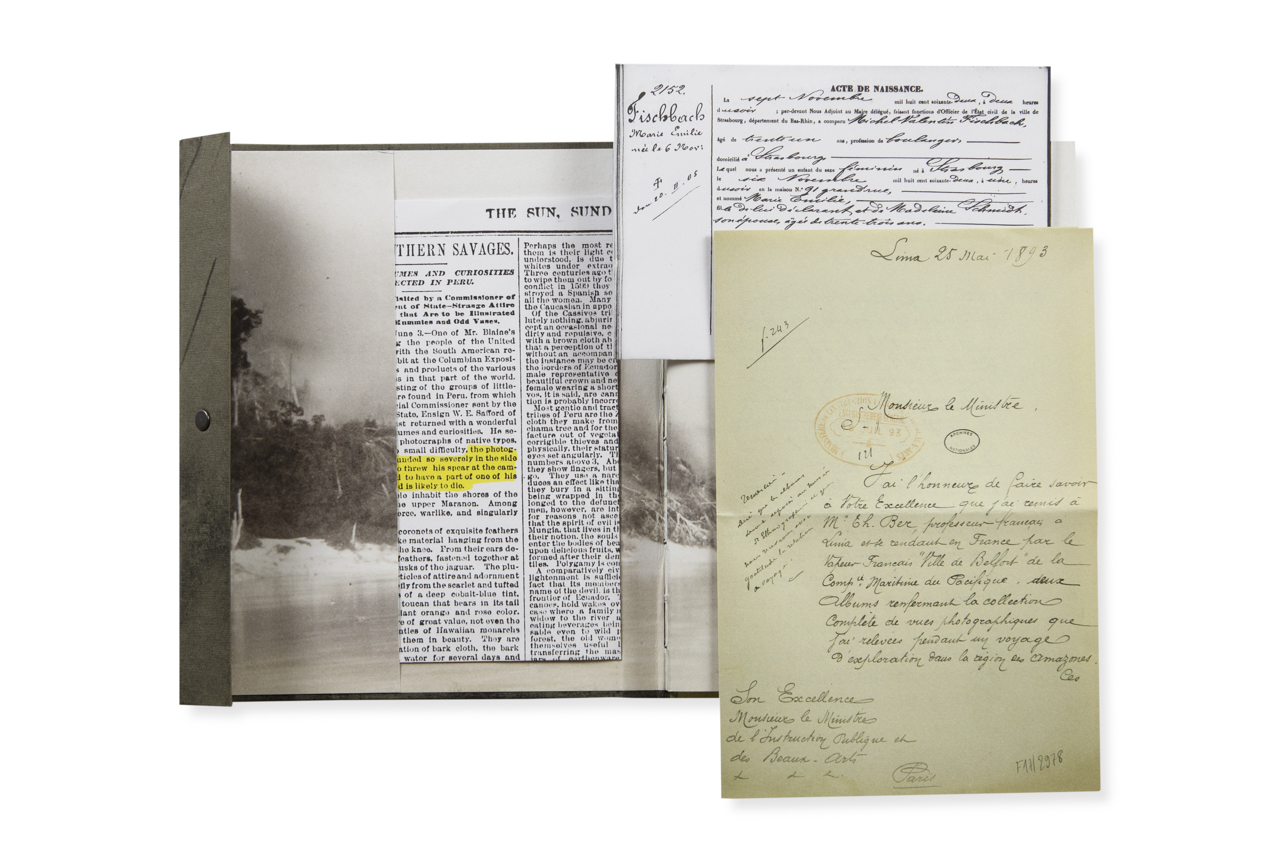 THE SUN, SUND
THERN SAVAGES.
UMES AND CURIOSITIES
ECTED IN PERU.
isited by a Commissioner of
nt of State—Strange Attire
that Are to be Illustrated
Mummies and Odd Vases.
June 3.—One of Mr. Blaine's
g the people of the United
with the South American re-
bit at the Columbian Exposi-
s and products of the various
s in that part of the world.
sting of the groups of little-
re found in Peru, from which
ial Commissioner sent by the
State, Ensign W. E. Safford of
st returned with a wonderful
umes and curiosities. He se-
photographs of native types,
small difficulty, the photog-
unded so severely in the side
o threw his spear at the cam-
l to have a part of one of his
d is likely to die.
le inhabit the shores of the
e upper Maranon. Among
orce, warlike, and singularly
coronets of exquisite feathers
ke material hanging from the
he knee. From their ears de-
feathers, fastened together at
usks of the jaguar. The plu-
ticles of attire and adornment
fly from the scarlet and tufted
s of a deep cobalt-blue tint,
toucan that bears in its tail
iant orange and rose color.
re of great value, not even the
ntles of Hawaiian monarchs
them in beauty. They are
ation of bark cloth, the bark
water for several days and
Perhaps the most re
them is their light c
understood, is due t
whites under extrao
Three centuries ago t
to wipe them out by fo
conflict in 1599 they
stroyed a Spanish se
all the women. Many
the Caucasian in appe
Of the Cassivos tri
lutely nothing, abjurin
cept an occasional ne
dirty and repulsive, c
with a brown cloth ab
that a perception of th
without an accompan
the instance may be ci
the borders of Ecuador
male representative
beautiful crown and ne
female wearing a short
ves. It is said, are cann
tion is probably incorre
Most gentle and tract
tribes of Peru are the
cloth they make from
chama tree and for the
facture out of vegeta
corrigible thieves and
physically, their statur
eyes set angularly. Th
numbers above 3. Abo
they show fingers, but
go. They use a nar
duces an effect like tha
they bury in a sitting
being wrapped in th
longed to the defunct
men, however, are int
for reasons not asce
that the spirit of evil i
Mungia, that lives in t
their notion, the souls
enter the bodies of bea
upon delicious fruits, w
formed after their den
tles. Polygamy is con
A comparatively civ
lightenment is suffici
fact that its members
name of the devil, is th
frontier of Ecuador.
canoes, hold wakes ov
case where a family r
widow to the river a
eating beverages bein
sable even to wild p
forest, the old wom
themselves useful
transferring the mas
jars of earthenware
2152.
Fischbach
Marie Emilie
née le 6 Nov:
ACTE DE NAISSANCE.
Le sept Novembre mil huit cent soixante-deux, à deux heures
du soir ; par-devant Nous Adjoint au Maire délégué, faisant fonctions d'Officier de l'État civil de la ville de
Strasbourg, département du Bas-Rhin, a comparu Michel Valentin Fischbach,
âgé de trente un ans, profession de boulanger,
domicilié à Strasbourg
Lequel nous a présenté un enfant du sexe féminin né à Strasbourg
le six Novembre mil huit cent soixante-deux, à une, heures
du soir en la maison N.° 91 grand'rue,
et nommé Marie Emilie,
fille de lui déclarant et de Madeleine Schmidt,
son épouse, âgée de trente-trois ans.
Lima 25 Mai 1893
f. 243
Monsieur le Ministre,
ARCHIVES
NATIONALES
J'ai l'honneur de faire savoir
à Votre Excellence que j'ai remis à
Mr Th. Ber, professeur français à
Lima et se rendant en France par le
Vapeur Francais "Ville de Belfort" de la
Compie Maritime du Pacifique, deux
Albums renfermant la collection
Complète de vues photographiques que
j'ai relevées pendant un voyage
D'exploration dans la région des Amazones.
Ces
Son Excellence
Monsieur le Ministre
de l'Instruction Publique et
des Beaux-Arts
Paris
F17/2978